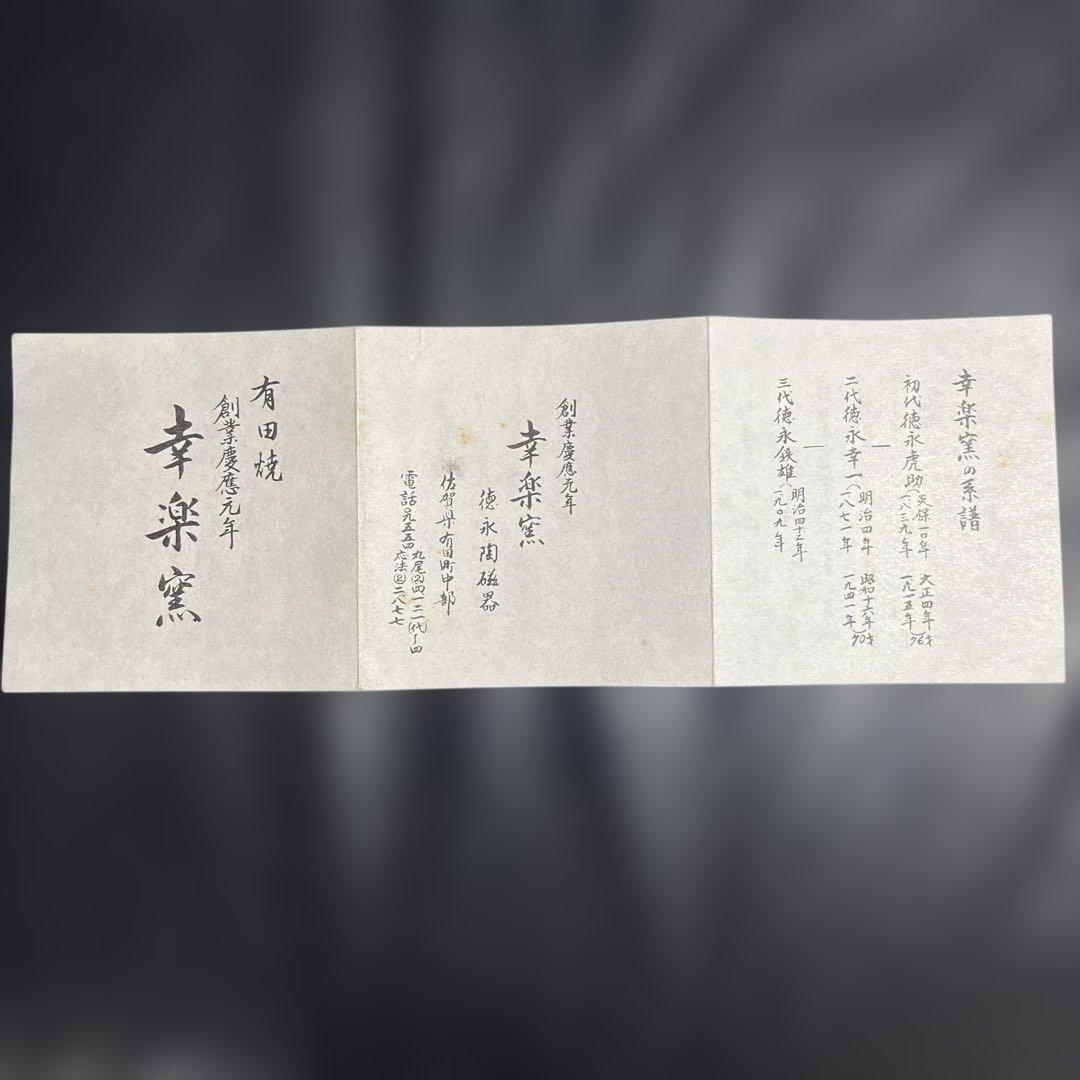 幸楽窯の系譜
初代徳永虎助(天保一〇年 大正四年)76才
一八三九年 一九一五年
二代徳永幸一(明治四年 昭和十六年)70才
一八七一年 一九四一年
三代徳永鉄雄(明治四十二年
一九〇九年
創業慶應元年
幸楽窯
徳永陶磁器
佐賀県有田町中部
電話〇九五五四
丸尾②四一二一(代)〜四
応法②二八七七
有田焼
創業慶應元年
幸楽窯